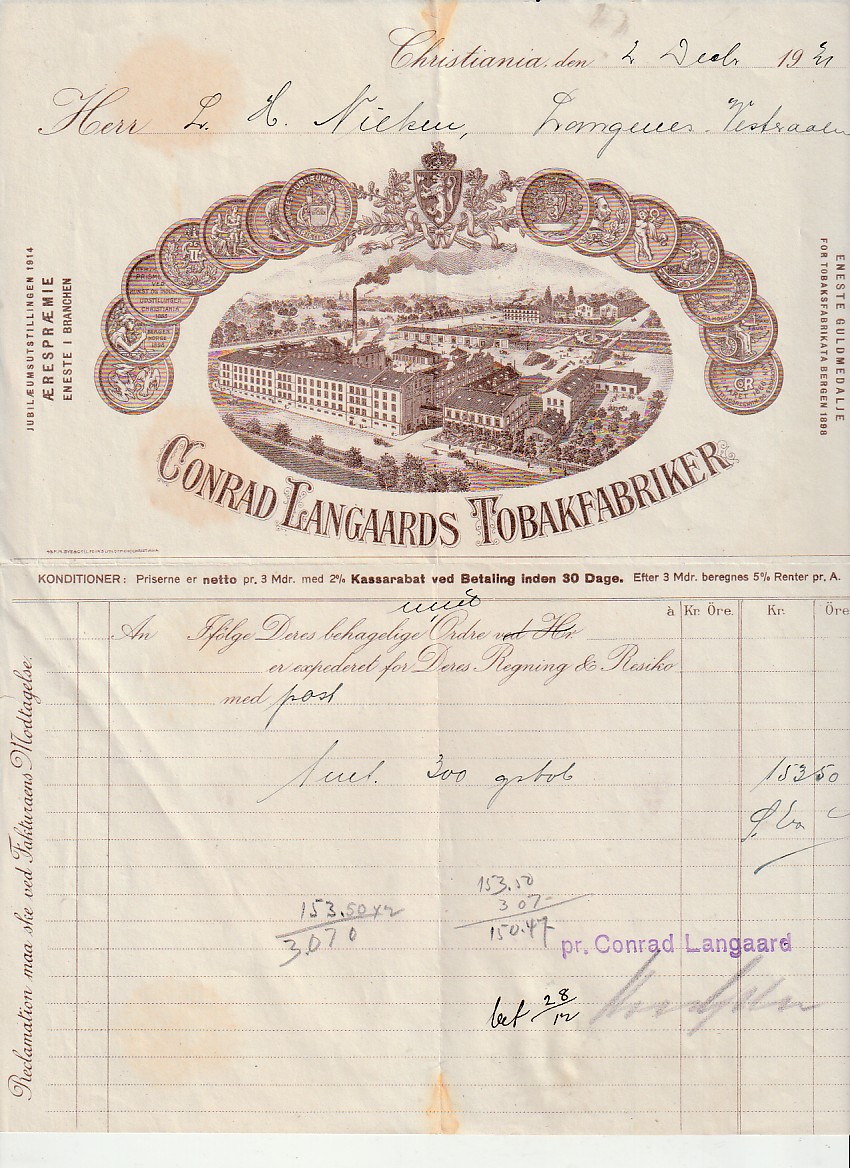 Christiania, den 2 Decbr 1921
Herr L. H. Nielsen, Langenes. Vesteraalen
JUBILÆUMSUTSTILLINGEN 1914
ÆRESPRÆMIE
ENESTE I BRANCHEN
ENESTE GULDMEDALJE
FOR TOBAKSFABRIKATA BERGEN 1898
CONRAD LANGAARDS TOBAKFABRIKER
KONDITIONER: Priserne er netto pr. 3 Mdr. med 2% Kassarabat ved Betaling inden 30 Dage. Efter 3 Mdr. beregnes 5% Renter pr. A.
à Kr. Öre. Kr. Öre
An Ifölge Deres behagelige Ordre ved Hr
er expederet for Deres Regning & Resiko
med post
300 153 50
153.50
307-
150.47
153.50
3.070
pr. Conrad Langaard
bet 28/12
Reclamation maa ske ved Fakturaens Modtagelse.